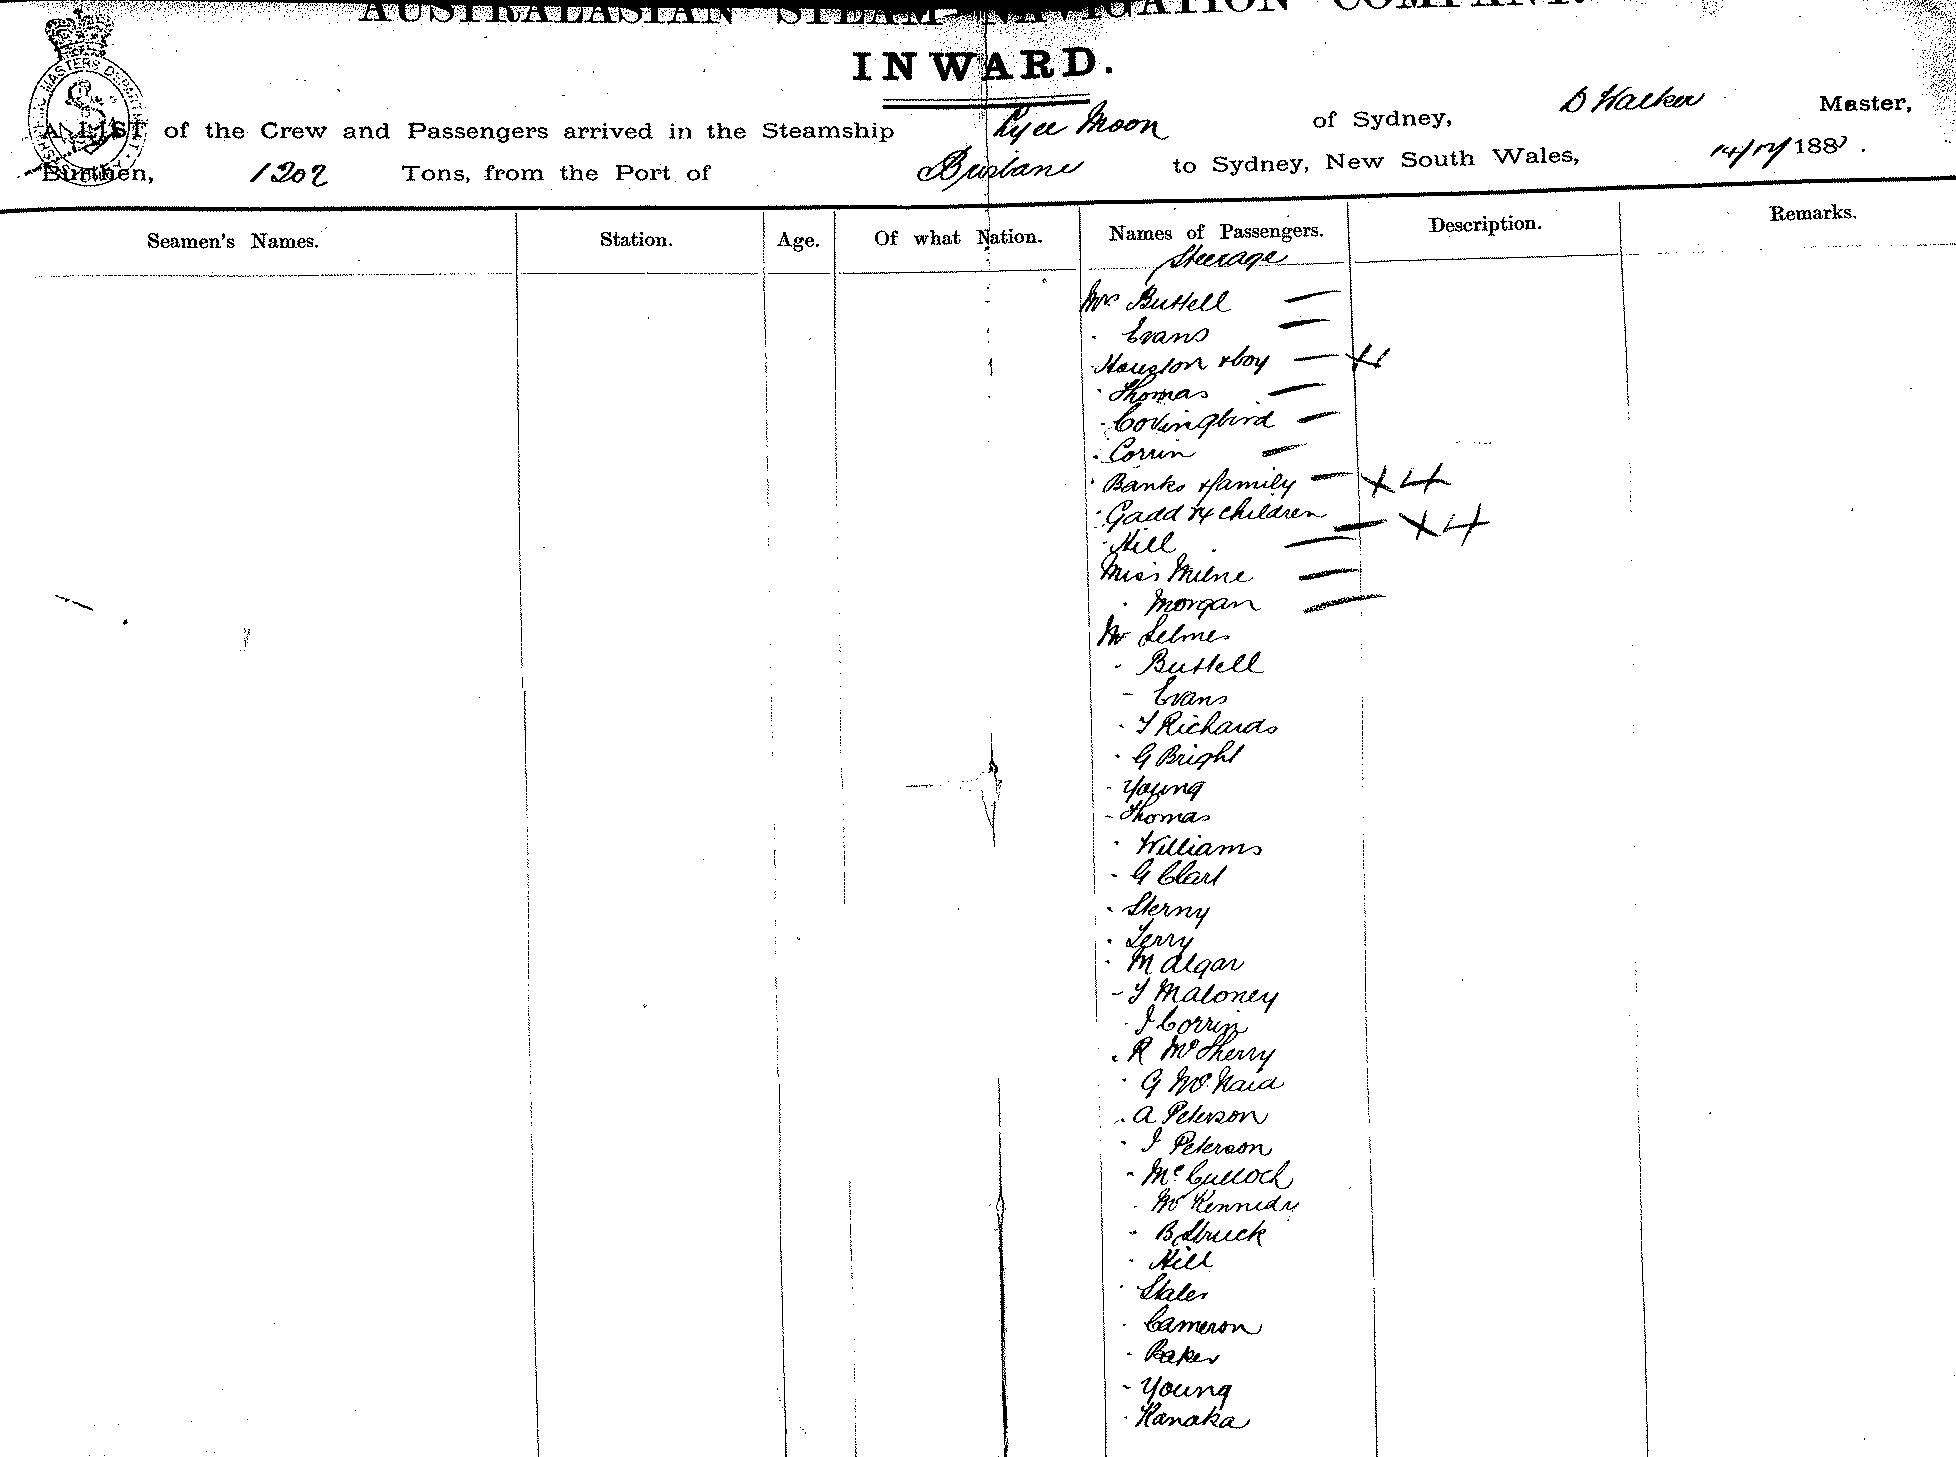 AUSTRALASIAN STEAM NAVIGATION COMPANY.
INWARD.
A LIST of the Crew and Passengers arrived in the Steamship Lyee Moon of Sydney, D Walker Master,
Burthen, 1202 Tons, from the Port of Brisbane to Sydney, New South Wales, 188
Seamen's Names. Station. Age. Of what Nation. Names of Passengers. Description. Remarks.
Steerage
Mrs Buttell
Evans
Houston & boy
Thomas
Corrin
Banks & family
Gadd & 4 children
Hill
Miss Milne
Morgan
Mr Selmes
Buttell
Evans
T Richards
G Bright
Young
Thomas
Williams
G Clark
Sterny
Terry
M Algar
T Maloney
J Corrin
R McSherry
G McNaid
A Peterson
J Peterson
McCulloch
McKennedy
B Struck
Hill
Stales
Cameron
Baker
Young
Kanaka